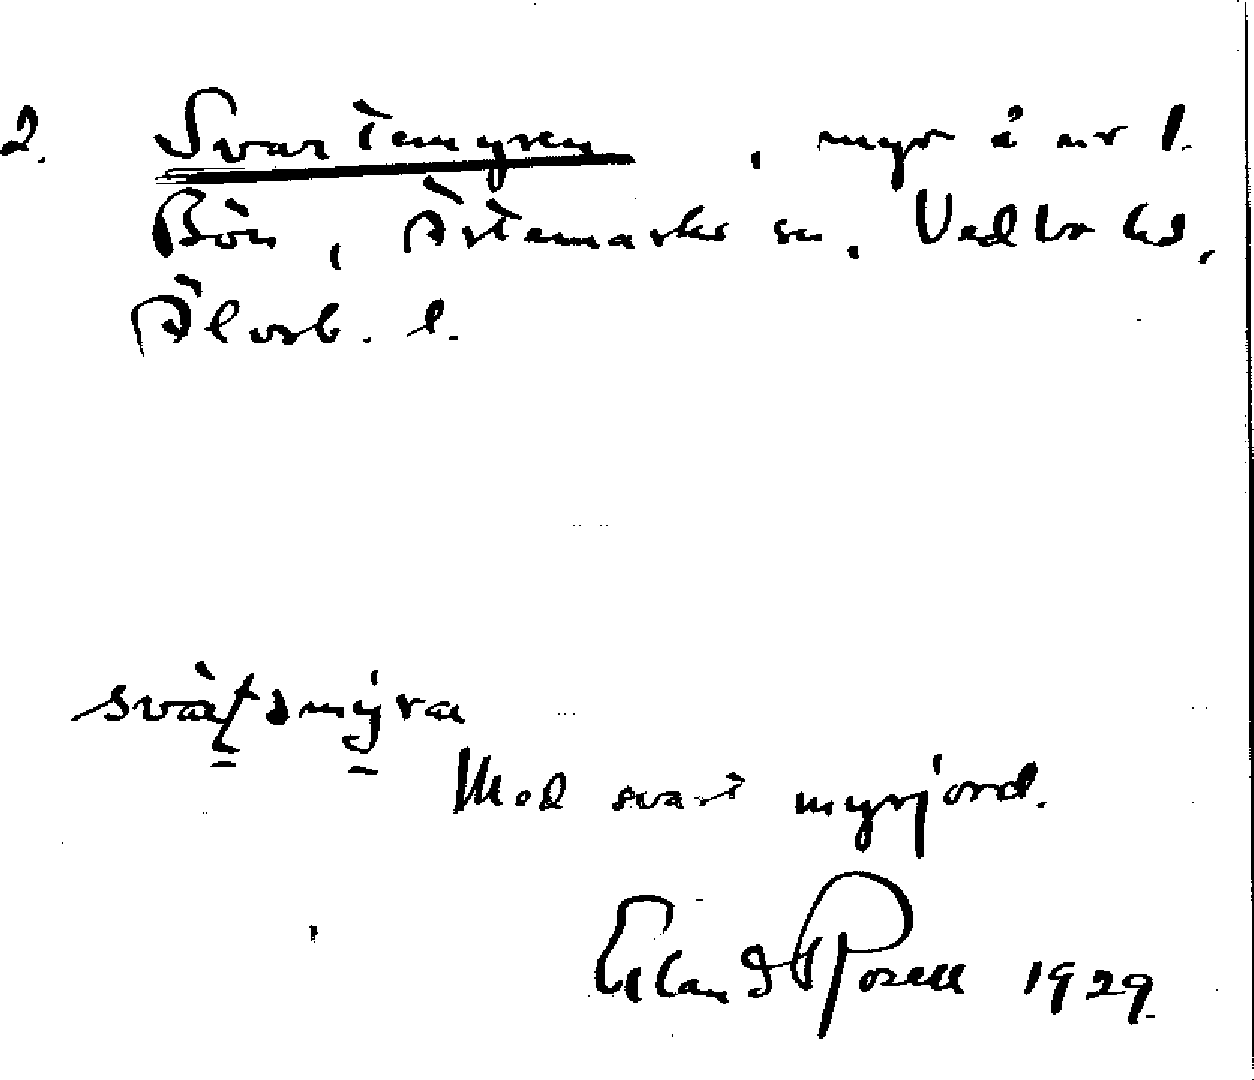 2. Svartemyren, myr å nr 1.
Bön, Ärtemarks sn, Vedbo hd,
Älvsb. l.
Med svart myrjord.
Erland Rosell 1929